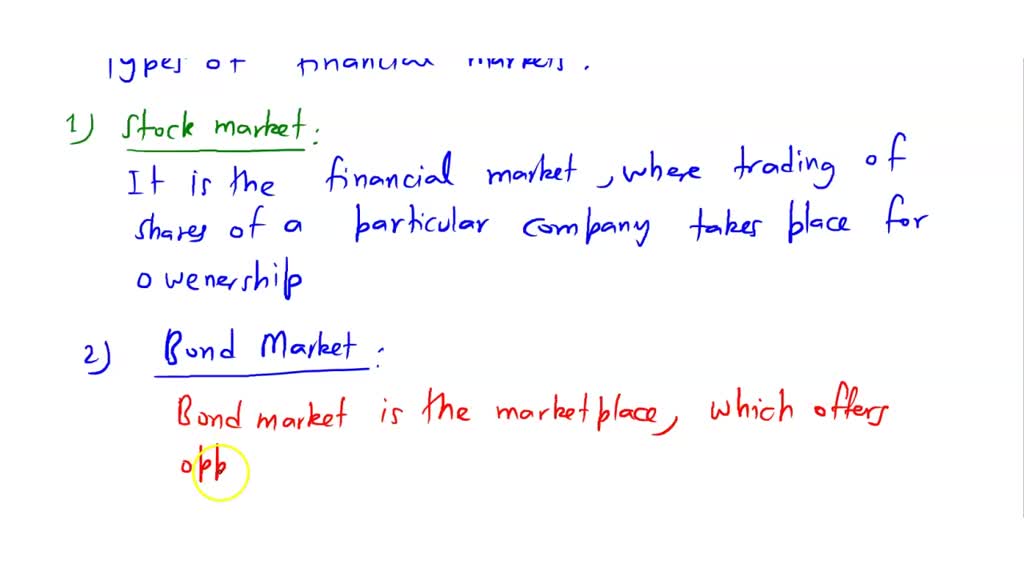 Types of financial markets.
1) Stock market:
It is the financial market, where trading of
shares of a particular company takes place for
owenership
2) Bond Market:
Bond market is the marketplace, which offers
opp